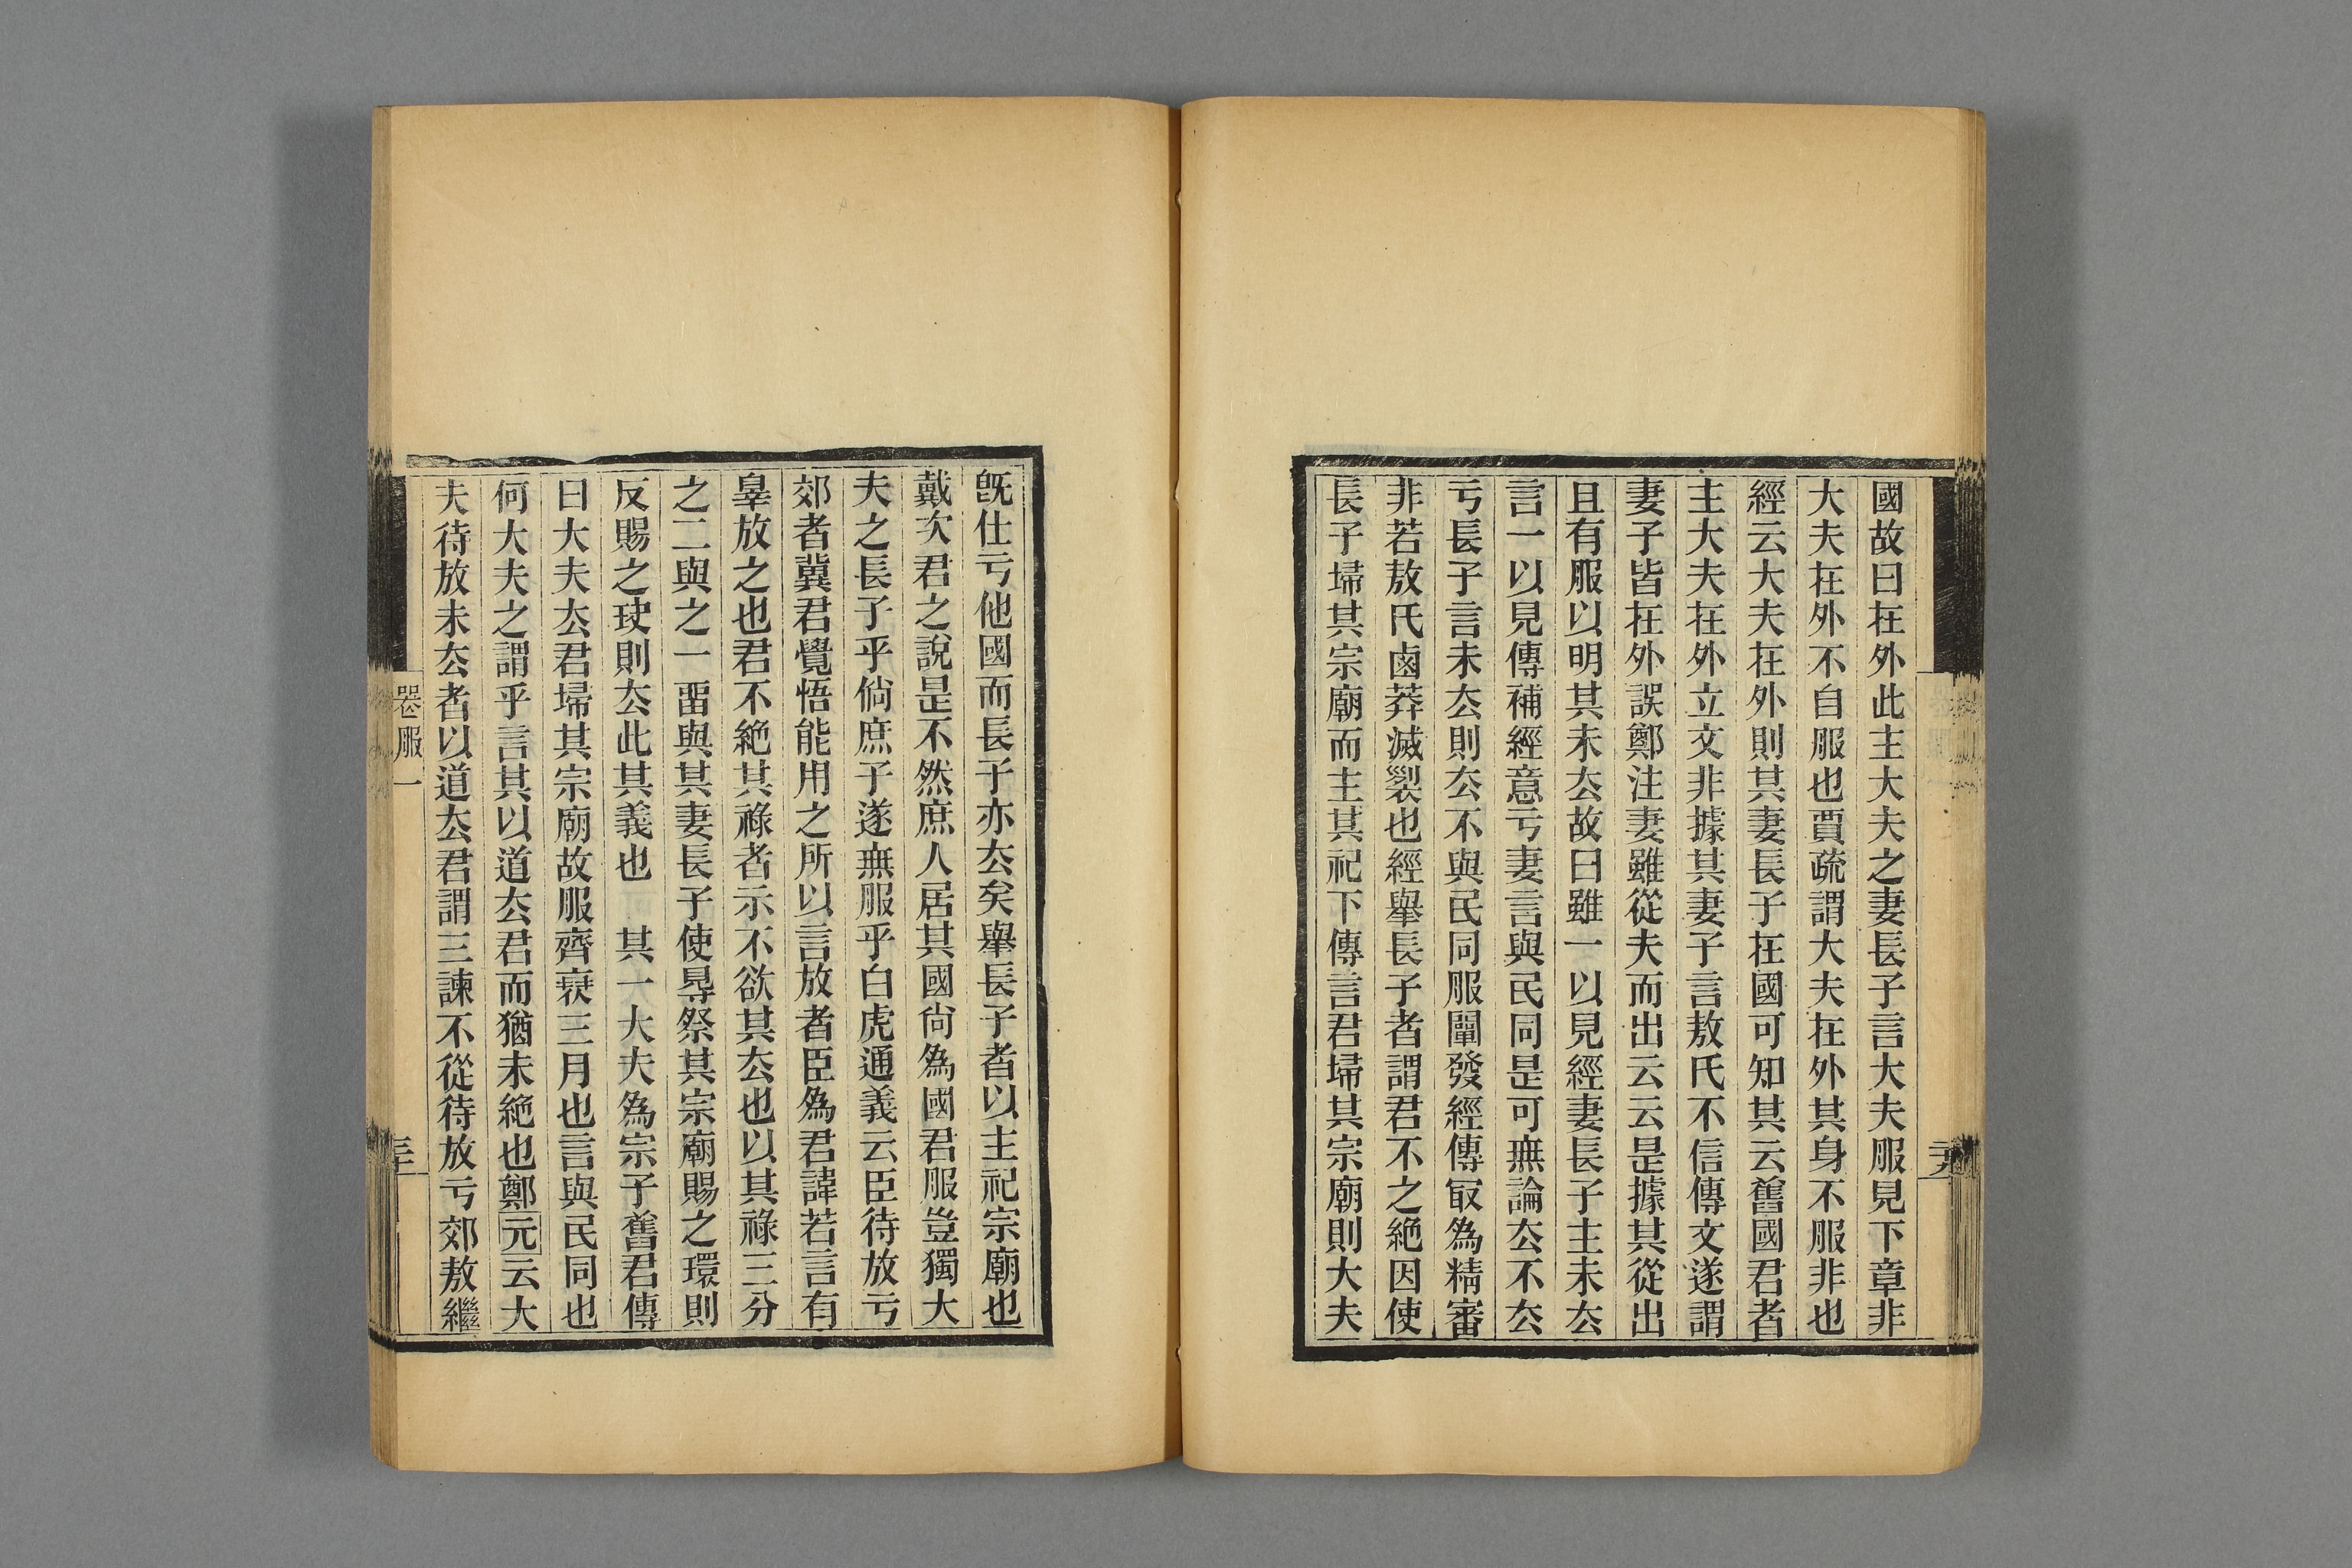 國故曰在外此主大夫之妻長子言大夫服見下章非
大夫在外不自服也賈疏謂大夫在外其身不服非也
經云大夫在外則其妻長子在國可知其云舊國君者
主大夫在外立文非據其妻子言敖氏不信傳文遂謂
妻子皆在外誤鄭注妻雖從夫而出云云是據其從出
且有服以明其未厺故曰雖一以見經妻長子主未厺
言一以見傳補經意亏妻言與民同是可無論厺不厺
亏長子言未厺則厺不與民同服闡發經傳㝡爲精審
非若敖氏鹵莽滅裂也經舉長子者謂君不之絶因使
長子埽其宗廟而主其祀下傳言君埽其宗廟則大夫
旣仕亏他國而長子亦厺矣舉長子者以主祀宗廟也
戴次君之說是不然庶人居其國尙爲國君服豈獨大
夫之長子乎倘庶子遂無服乎白虎通義云臣待放亏
郊者冀君覺悟能用之所以言放者臣爲君諱若言有
辠放之也君不絶其祿者示不欲其厺也以其祿三分
之二與之一畱與其妻長子使㝵祭其宗廟賜之環則
反賜之玦則厺此其義也　其一大夫爲宗子舊君傳
曰大夫厺君埽其宗廟故服齊衰三月也言與民同也
何大夫之謂乎言其以道厺君而猶未絶也鄭元云大
夫待放未厺者以道厺君謂三諫不從待放亏郊敖繼
喪服一
三十